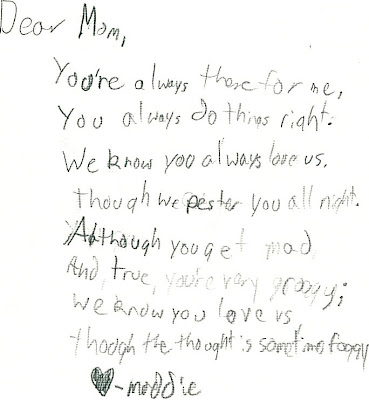 Dear Mom,
You're always there for me,
You always do things right.
We know you always love us,
though we pester you all night.
Although you get mad,
And, true, you're very groggy;
we know you love us,
though the thought is sometimes foggy
♥-maddie